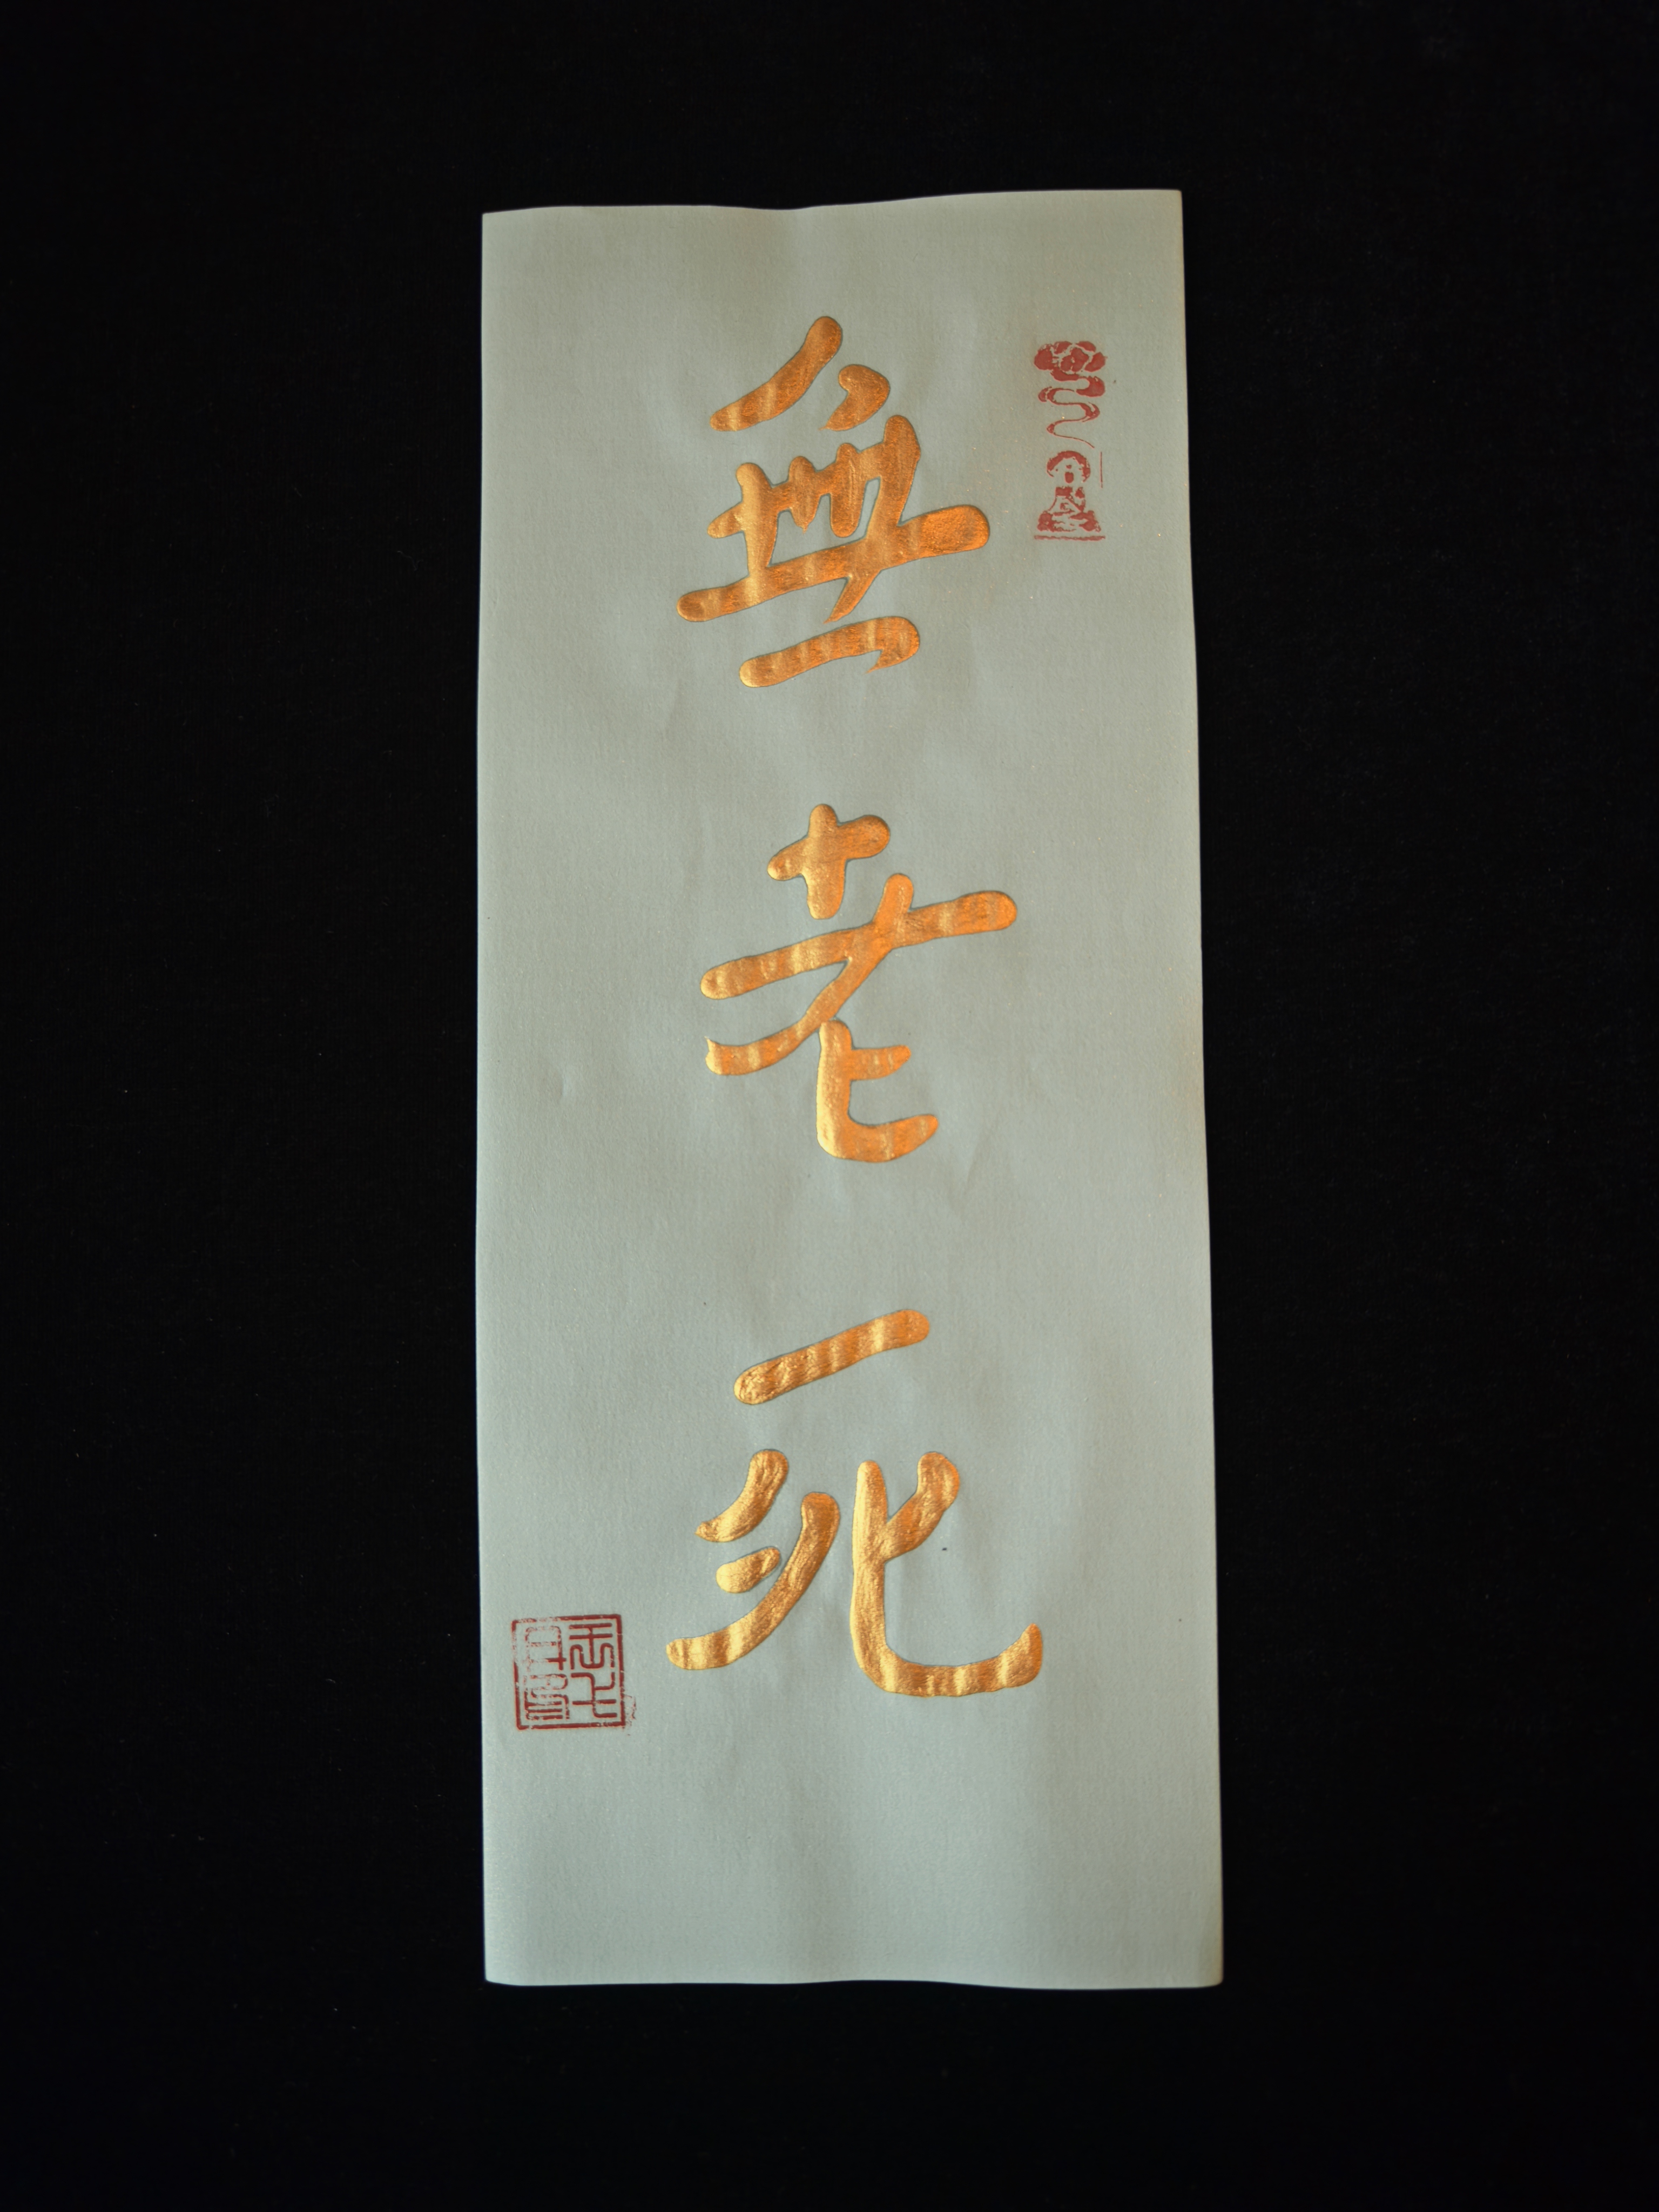 無老死